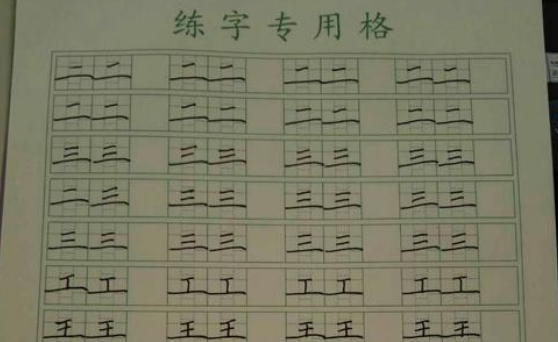 练字专用格
二二 二二 二二 二二
二二 二二 二二 二二
三三 三三 三三 三三
二三 三三 三三 三三
三三 三三 三三 三三
工工 工工 工工 工工
王王 王王 王王 王王